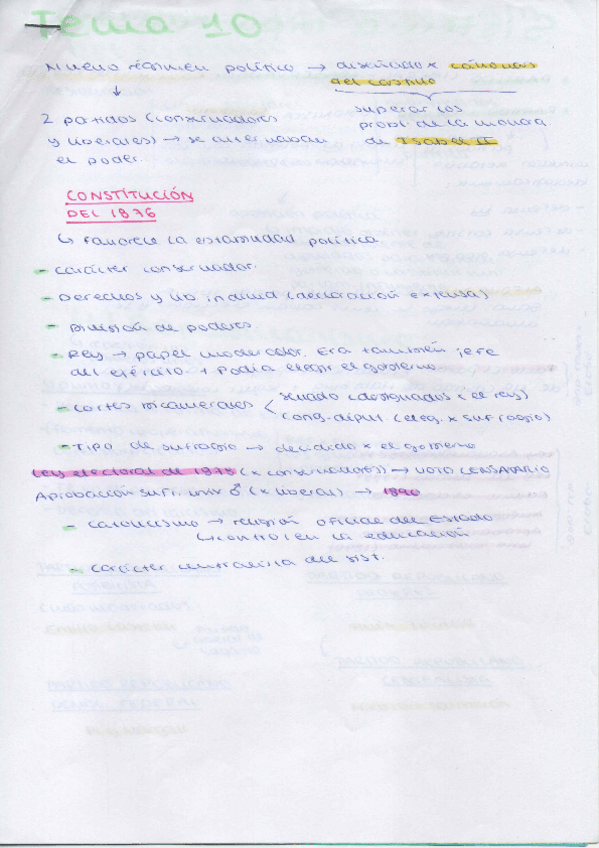 Tema 10
Nuevo régimen político → diseñado x Cánovas
del Castillo
2 partidos (conservadores
y liberales) → se alternaban
el poder.
superar los
probl. de la monar
de Isabel II
CONSTITUCIÓN
DEL 1876
↳ Favorece la estabilidad política
- Carácter conservador.
- Derechos y lib individ (declaración extensa)
- División de poderes
- Rey → papel moderador. Era también jefe
del ejército + podía elegir el gobierno
- Cortes bicamerales < senado (designados x el rey)
cong. diput. (eleg. x sufragio)
- Tipo de sufragio → decidido x el gobierno
Ley electoral de 1878 (x conservadores) → VOTO CENSATARIO
Aprobación sufr. univ ♂ (x liberal) → 1890
- Catolicismo → religión oficial del Estado
↳ control en la educación
- Carácter centralista del sist.